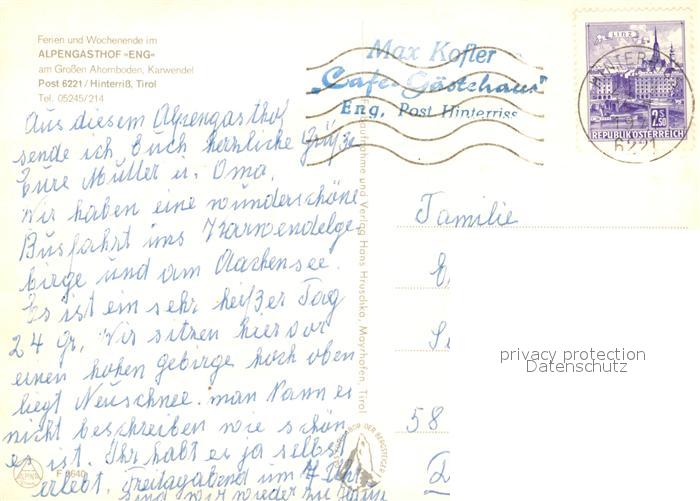 Ferien und Wochenende im
ALPENGASTHOF »ENG«
am Großen Ahornboden, Karwendel
Post 6221 / Hinterriß, Tirol
Tel. 05245/214
Aus diesem Alpengasthof
sende ich Euch herzliche Grüße
Eure Mutter u. Oma.
Wir haben eine wunderschöne
Busfahrt ins Karwendelge
birge und am Aachensee.
Es ist ein sehr heißer Tag
24 Gr. Wir sitzen hier vor
einen hohen gebirge hoch oben
liegt Neuschnee. man kann es
nicht beschreiben wie schön
es ist. Ihr habt es ja selbst
erlebt. Freitagabend um 7 Uhr
sind wir wieder zu
F 8640
Aufnahme und Verlag Hans Hruschka, Mayrhofen, Tirol
Max Kofler
„Cafe-Gästehaus"
Eng, Post Hinterriss
LINZ
2 S
2.50
REPUBLIK ÖSTERREICH
6221
Familie
58
privacy protection
Datenschutz